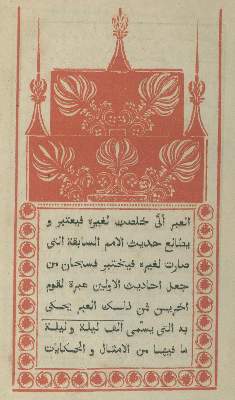 العبر التى حصلت لغيره فيعتبر و
يطالع حديث الامم السابقة التى
صارت لغيره فيختبر فسبحان من
جعل احاديث الاولين عبرة لقوم
اخريين فمن ذلك العبر يحكى
به التى يسمى الف ليلة وليلة
ما فيها من الامثال والحكايات